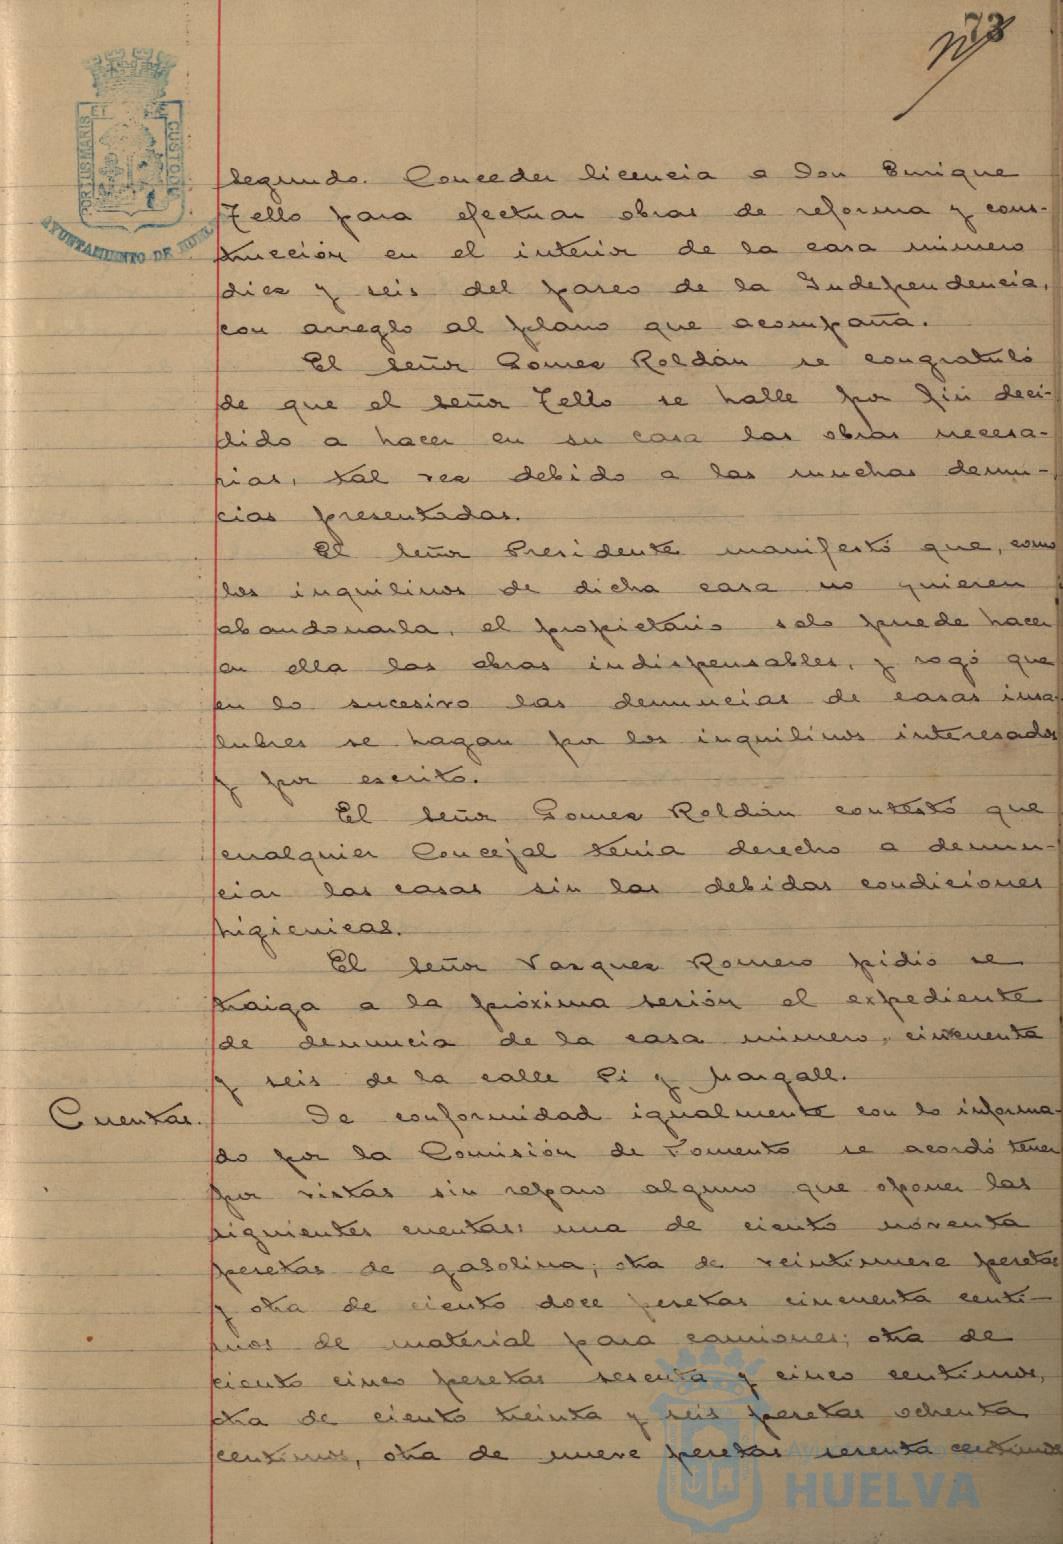 73
PORTUS MARIS ET TERRAE CUSTODIA
AYUNTAMIENTO DE HUELVA
segundo. Conceder licencia a Don Enrique
Tello para efectuar obras de reforma y cons-
trucción en el interior de la casa número
diez y seis del paseo de la Independencia,
con arreglo al plano que acompaña.
El señor Gomez Roldán se congratuló
de que el señor Tello se halle por fin deci-
dido a hacer en su casa las obras necesa-
rias, tal vez debido a las muchas denun-
cias presentadas.
El señor Presidente manifestó que, como
los inquilinos de dicha casa no quieren
abandonarla, el propietario solo puede hacer
en ella las obras indispensables, y rogó que
en lo sucesivo las denuncias de casas insa-
lubres se hagan por los inquilinos interesados
y por escrito.
El señor Gomez Roldán contestó que
cualquier Concejal tenia derecho a denun-
ciar las casas sin las debidas condiciones
higienicas.
El señor Vazquez Romero pidió se
traiga a la próxima sesión el expediente
de denuncia de la casa número, cincuenta
y seis de la calle Pi y Margall.
Cuentas.
De conformidad igualmente con lo informa-
do por la Comisión de Fomento se acordó tener
por vistas sin reparo alguno que oponer las
siguientes cuentas: una de ciento noventa
pesetas de gasolina; otra de veintinueve pesetas
y otra de ciento doce pesetas cincuenta centi-
mos de material para camiones; otra de
ciento cinco pesetas sesenta y cinco centimos,
otra de ciento treinta y seis pesetas ochenta
centimos, otra de nueve pesetas sesenta centimos
Ayuntamiento de
HUELVA